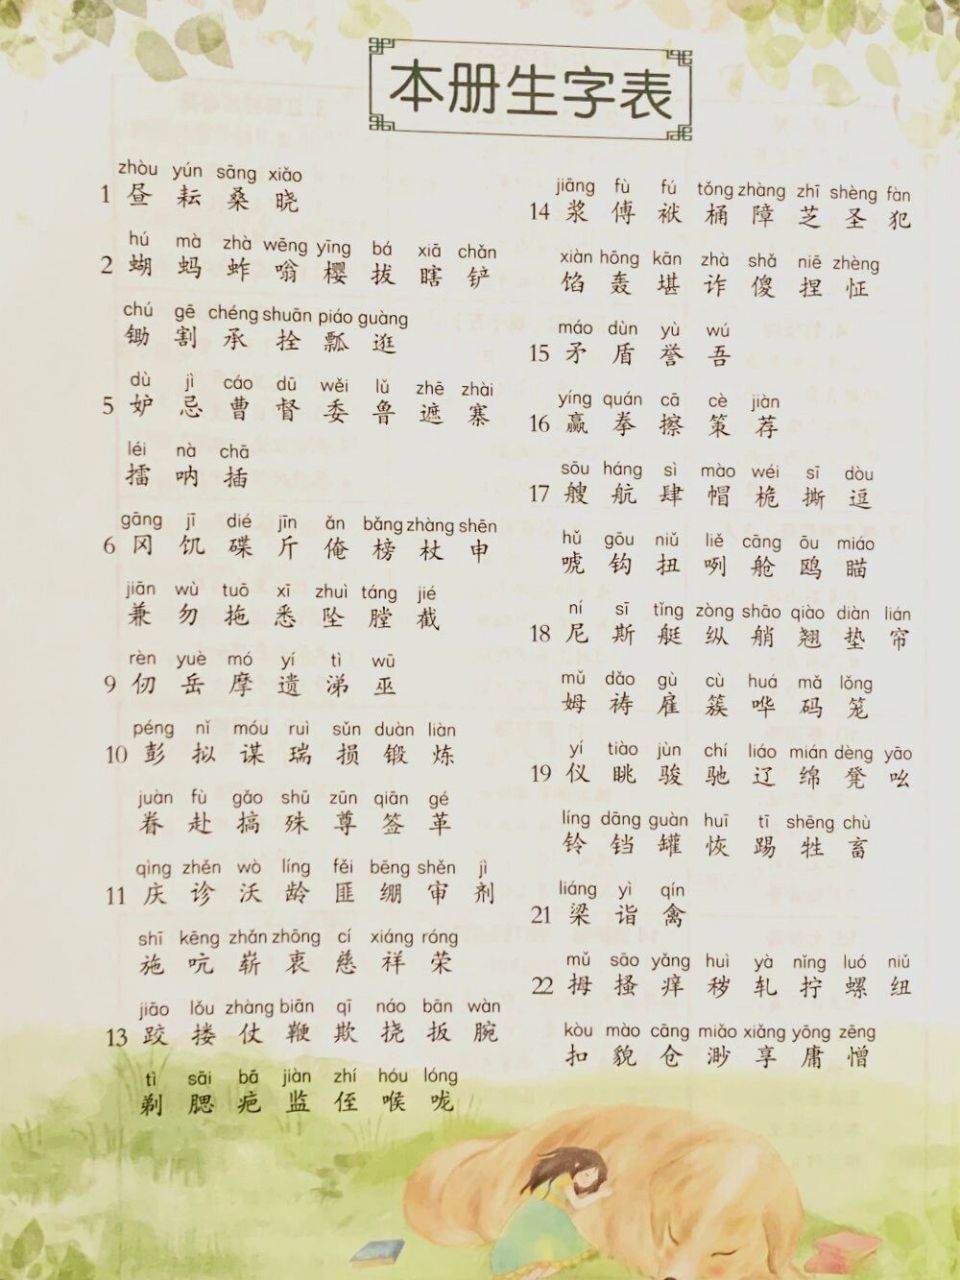 本册生字表
zhòu yún sāng xiǎo
1 昼 耘 桑 晓
hú mà zhà wēng yīng bá xiā chǎn
2 蝴 蚂 蚱 嗡 樱 拔 瞎 铲
chú gē chéng shuān piáo guàng
锄 割 承 拴 瓢 逛
dù jì cáo dū wěi lǔ zhē zhài
5 妒 忌 曹 督 委 鲁 遮 寨
léi nà chā
擂 呐 插
gāng jī dié jīn ǎn bǎng zhàng shēn
6 冈 饥 碟 斤 俺 榜 杖 申
jiān wù tuō xī zhuì táng jié
兼 勿 拖 悉 坠 膛 截
rèn yuè mó yí tì wū
9 仞 岳 摩 遗 涕 巫
péng nǐ móu ruì sǔn duàn liàn
10 彭 拟 谋 瑞 损 锻 炼
juàn fù gǎo shū zūn qiān gé
眷 赴 搞 殊 尊 签 革
qìng zhěn wò líng fěi bēng shěn jì
11 庆 诊 沃 龄 匪 绷 审 剂
shī kēng zhǎn zhōng cí xiáng róng
施 吭 崭 衷 慈 祥 荣
jiāo lǒu zhàng biān qī náo bān wàn
13 跤 搂 仗 鞭 欺 挠 扳 腕
tì sāi bā jiàn zhí hóu lóng
剃 腮 疤 监 侄 喉 咙
jiāng fù fú tǒng zhàng zhī shèng fàn
14 浆 傅 袱 桶 障 芝 圣 犯
xiàn hōng kān zhà shǎ niē zhèng
馅 轰 堪 诈 傻 捏 怔
máo dùn yù wú
15 矛 盾 誉 吾
yíng quán cā cè jiàn
16 赢 拳 擦 策 荐
sōu háng sì mào wéi sī dòu
17 艘 航 肆 帽 桅 撕 逗
hǔ gōu niǔ liě cāng ōu miáo
唬 钩 扭 咧 舱 鸥 瞄
ní sī tǐng zòng shāo qiào diàn lián
18 尼 斯 艇 纵 艄 翘 垫 帘
mǔ dǎo gù cù huá mǎ lǒng
姆 祷 雇 簇 哗 码 笼
yí tiào jùn chí liáo mián dèng yāo
19 仪 眺 骏 驰 辽 绵 凳 吆
líng dāng guàn huī tī shēng chù
铃 铛 罐 恢 踢 牲 畜
liáng yì qín
21 梁 诣 禽
mǔ sāo yǎng huì yà nǐng luó niǔ
22 拇 搔 痒 秽 轧 拧 螺 纽
kòu mào cāng miǎo xiǎng yōng zēng
扣 貌 仓 渺 享 庸 憎